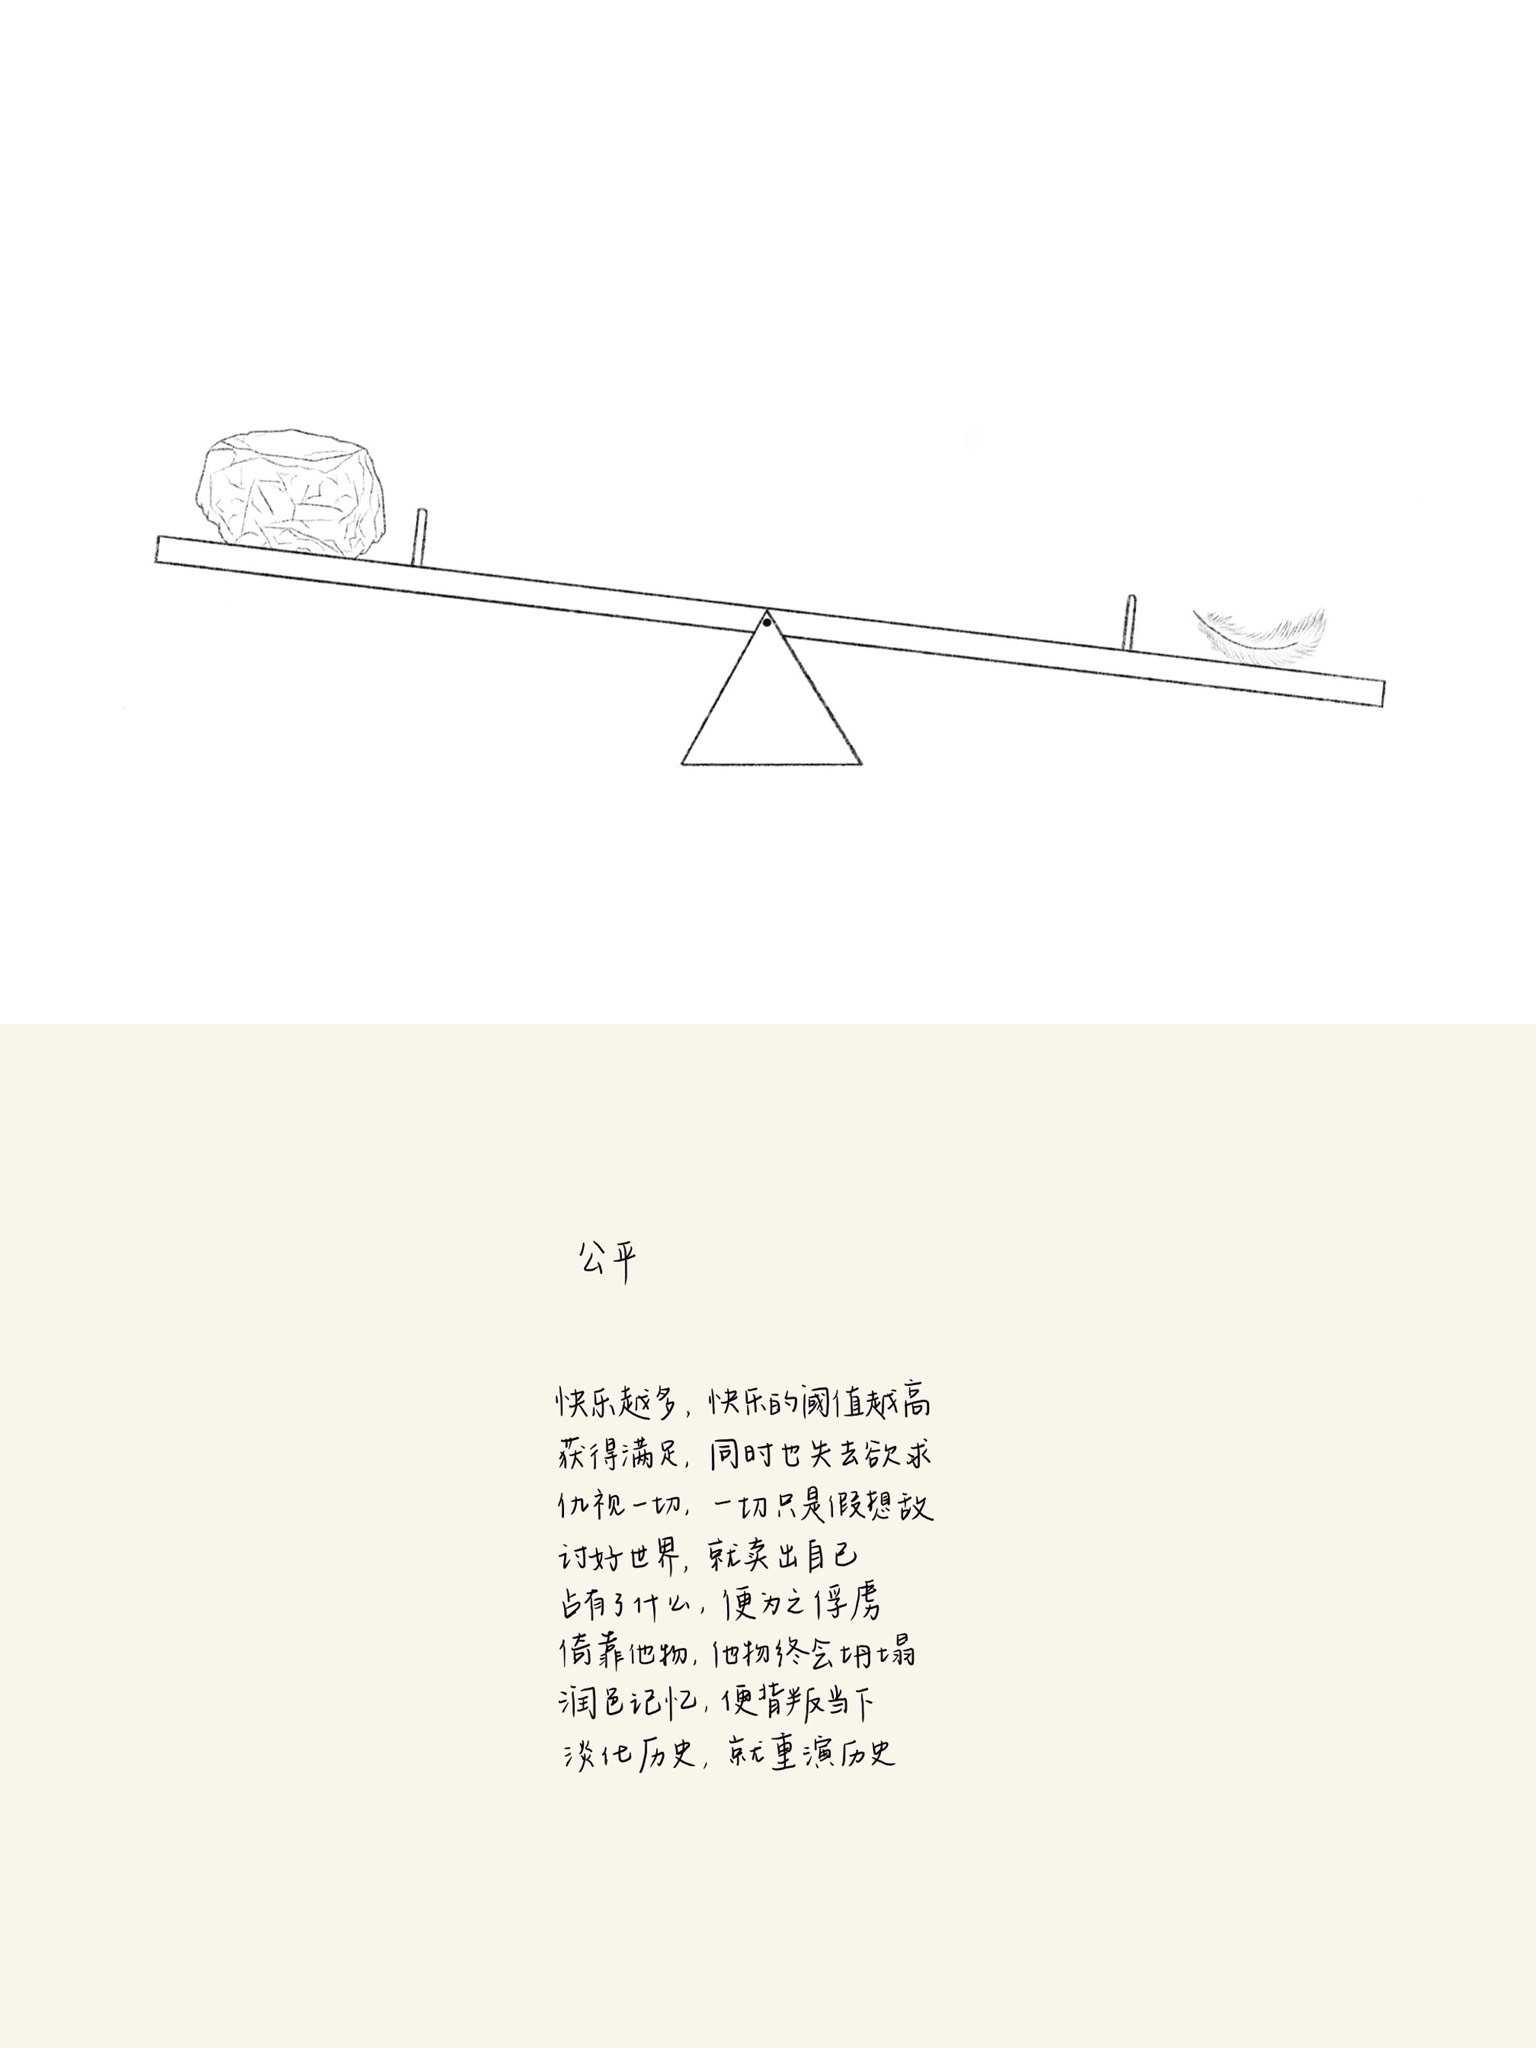 公平
快乐越多，快乐的阈值越高
获得满足，同时也失去欲求
仇视一切，一切只是假想敌
讨好世界，就卖出自己
占有了什么，便为之俘虏
倚靠他物，他物终会坍塌
润色记忆，便背叛当下
淡化历史，就重演历史